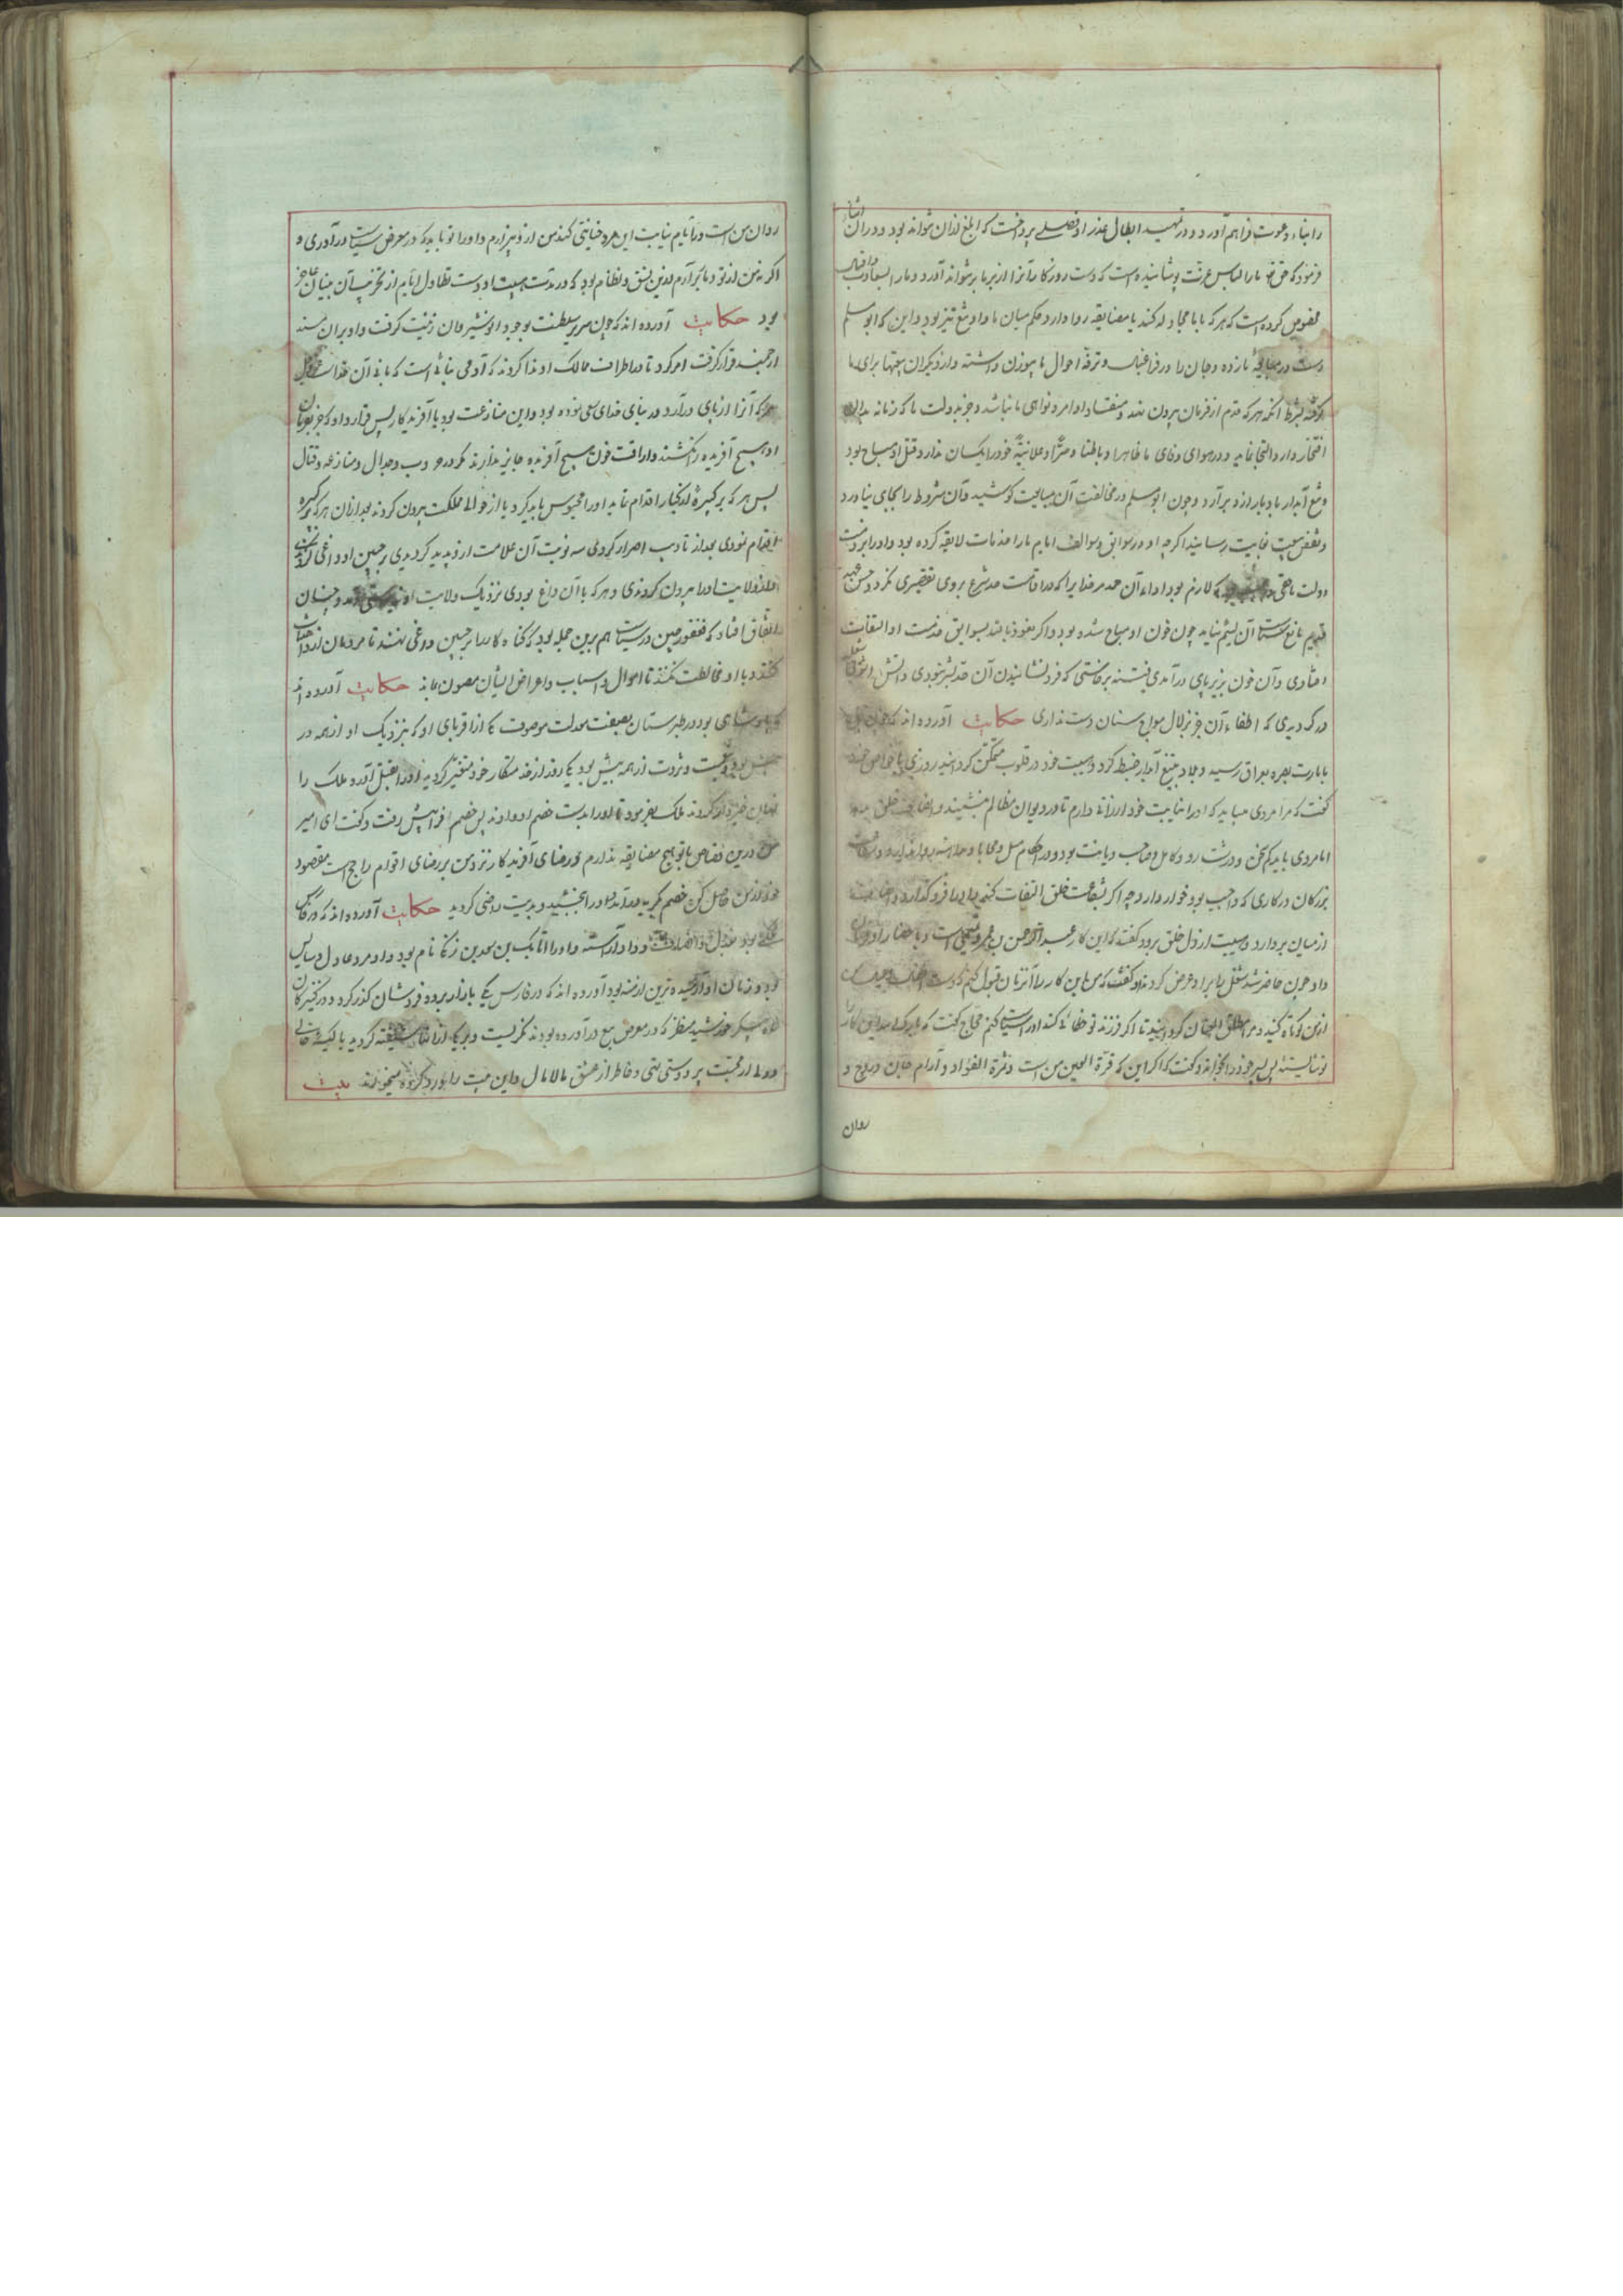 را بناء دعوت فراهم آورد و در تمهید ابطال عذر او فصلی پرداخت که ابلغ ازان نتواند بود و در ان اثناء
فرمود که حق ما را لباس عزت پوشانیده است که دست روزکار آنرا از بر ما بر نتواند آورد و ما را
مخصوص کرده است که هر که با ما مجادله کند یا مضایقه روا دارد حکم میان ما و او تیغ تیز بود و این که ابو مسلم
دست در مبایعه ما زده و جهان را در فراغبال و ترفه احوال ما بیوزن داشته و از دیکران بیعتها برای ما
کرفته بشرط آنکه هر که قدم از فرمان بیرون نهد و منقاد اوامر و نواهی ما نباشد و جز بدولت ما که زمانه بدان
افتخار دارد التجا نماید و در هوای وفای ما ظاهرا و باطنا و سرا و علانیة خود را یکسان ندارد قتل او مباح بود
و تیغ آبدار ما دمار ازو بر آرد و چون ابو مسلم در مخالفت آن مبایعت کوشید و آن شروط را بجای نیاورد
و نقض بیعت بغایت رسانید اکرچه او در سوابق و سوالف ایام ما را خدمات لایقه کرده بود و او را بر ذمت
دولت ما حقی که لازم بود اداء آن حد مر خدایرا که در اقامت حد شرع بروی تقصیری نکرد و حسن عهد
قدیم مانع سیاست آن لئیم نیاید چون خون او مباح شده بود و اکر نعوذ بالله بسوابق خدمت او التفات
افتادی و آن خون بزیر پای در آمدی فتنه برخاستی که فرو نشانیدن آن متعذر نمودی و آتش
در کرد دیدی که اطفاء آن جز بزلال مواج سنان دست ندادی حکایت آورده اند که
بامارت بصره بعراق رسید و بلاد بتیغ آبدار ضبط کرد و هیبت خود در قلوب متمکن کردانید روزی با خواص خود
کفت که مرا مردی میباید که او را نیابت خود ارزانی دارم تا در دیوان مظالم بنشیند و انصاف خلق بدهد
اما مردی باید کم سخن و درشت رو و کامل و صاحب دیانت بود و در احکام میل و محابا و مداهنه روا ندارد و
بزرکان در کاری که واجب بود خوار دارد چه اکر بشفاعت خلق التفات کند و آنرا فرو کذارد
از میان بردارد و هیبت از دل خلق برود کفتند که این کار عبد الرحمن بن تمیمی است و باحضار او
داد چون حاضر شد شغل را بر او عرض کردند او کفت که من این کار را آنزمان قبول کنم که دست
ازمن کوتاه کنید و مرا مطلق العنان کردانید تا اکر فرزند تو خطائی کند او را سیاست کنم حجاج کفت که
تو شایستۀ پس پسر خود را بخواند و کفت که اکر این که قرة العین من است و ثمرة الفؤاد و آرام جان و روح و
روان
روان من است در ایام نیابت این مرد خیانتی کند من ازو بیزارم و او را تو باید که در معرض سیاست در آوری و
اکر نه من از تو دمار بر آرم ازین نسق و نظام بود که در مدت هیبت او دست تطاول ایام از تخریب آن بنیان عاجز
بود حکایت آورده اند که چون سریر سلطنت بوجود انوشیروان زینت کرفت و او بران مسند
ارجمند قرار کرفت امر کرد تا در اطراف ممالک او ندا کردند که آدمی بنائی است که بانی آن خدا است
هر که آنرا از پای در آرد در بنای خدای سعی نموده بود و این منازعت بود با آفریدکار پس قرار داد که جز بفرمان
او هیچ آفریده را نکشند و اراقت خون هیچ آفریده جایز ندارند مکر در حروب و جدال و منازعه و قتال
پس هر که بر کبیرۀ از کبایر اقدام نماید او را محبوس باید کرد یا از حوالی مملکت بیرون کردند بعد ازان هر که بر کبیره
اقدام نمودی بعد از تأدیب اصرار کردی سه نوبت آن علامت ازو پدید کردیدی بر جبین او داغی
و از ولایت او را بیرون کردندی و هر که با آن داغ بودی نزدیک ولایت او و چنان
اتفاق افتاد که فغفور چین در سیاست هم برین جمله بود که کناه کار را بر جبین داغی نهند تا مردمان ازو اجتناب
کنند و با او مخالطت نکنند تا اموال و اسباب و اعراض ایشان مصون ماند حکایت آورده اند
که پادشاهی بود در طبرستان بصفت معدلت موصوف یکی از اقربای او که بنزدیک او از همه در
پیش بود و نعمت و ثروت از همه بیش بود یک روز از خدمتکار خود متغیر کردید او را بقتل آورد ملک را
ازین خبردار کردند ملک بفرمود تا او را بدست خصم او دادند پس خصم افرا پیش رفت و کفت ای امیر
من درین قصاص با تو هیچ مضایقه ندارم و رضای آفریدکار نزد من بر رضای اقوام راجح است مقصود
خود از من حاصل کن خصم بکریه در آمد و او را بخشید و بدیت راضی کردید حکایت آورده اند که در فارس
ملکی بود بعدل و انصاف و داد آراسته و او را اتابک بن سعد بن زنکی نام بود و او مرد عادل و سایس
بود و زمان او آسوده ترین ازمنه بود آورده اند که در فارس یکی ببازار برده فروشان کذر کرد و در کنیزکان
ماه پیکر خورشید منظر که در معرض بیع در آورده بودند نکریست و بر یکی از انها شیفته کردید با کیسۀ خالی
و دلی از محبت پر و دستی تهی و خاطر از عشق مالامال و این بیت را ورد کرده میخواند بیت